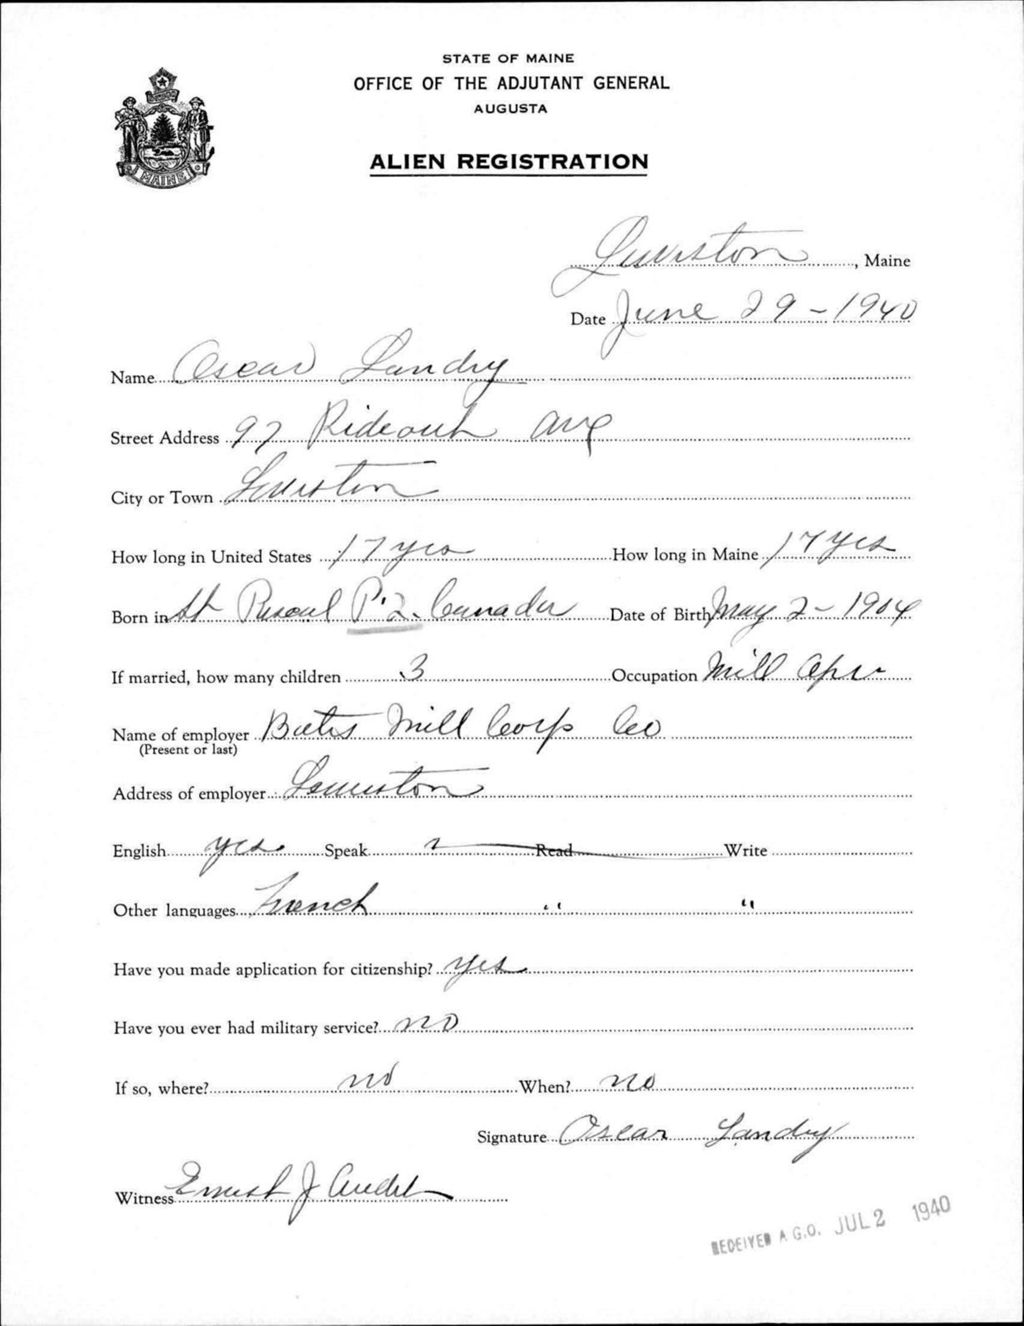 STATE OF MAINE
OFFICE OF THE ADJUTANT GENERAL
AUGUSTA
ALIEN REGISTRATION
MAINE
Lewiston, Maine
Date June 29-1940
Name Oscar Landry
Street Address 97 Rideout Ave
City or Town Lewiston
How long in United States 17 yrs How long in Maine 17 yrs
Born in St Pascal P.Q. Canada Date of Birth May 2-1904
If married, how many children 3 Occupation Mill Opr
Name of employer Bates Mill Corp Co
(Present or last)
Address of employer Lewiston
English yes Speak Read Write
Other languages French " "
Have you made application for citizenship? yes
Have you ever had military service? no
If so, where? no When? no
Signature Oscar Landry
Witness Ernest J Audet
RECEIVED A.G.O. JUL 2 1940